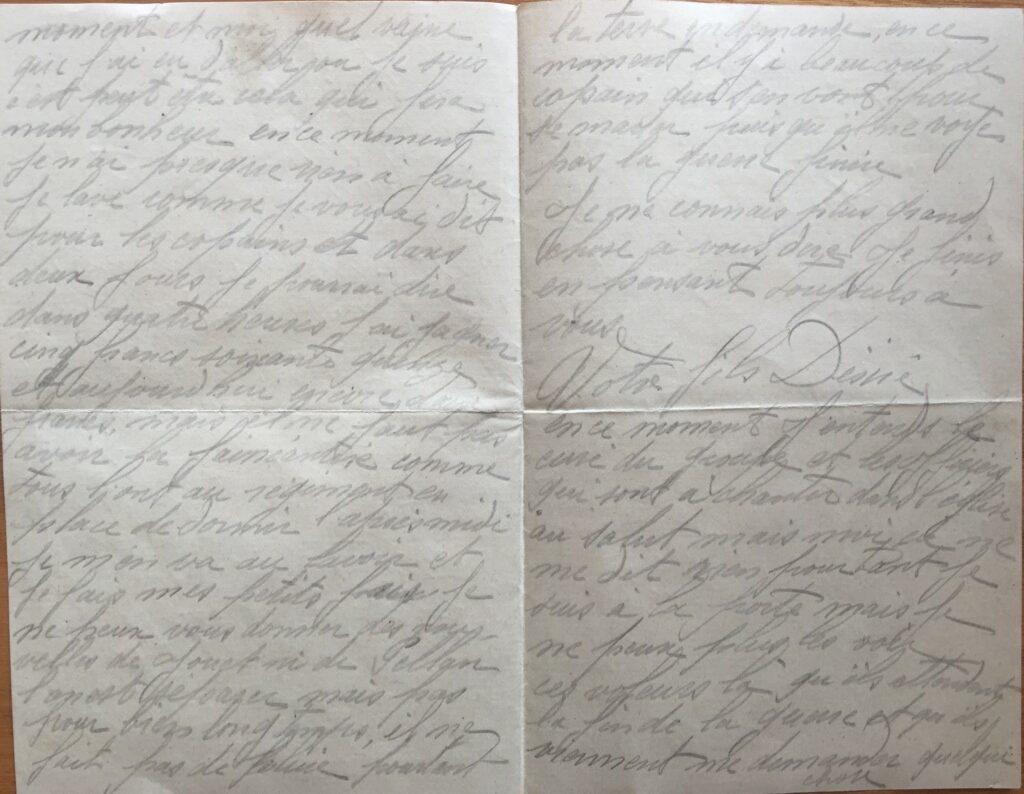 moment et moi quel veine
que j'ai eu d'aller ou je suis
c'est peut etre cela qui fera
mon bonheur en ce moment
je n'ai presque rien à faire
je lave comme je vous ai dit
pour les copains et dans
deux jours je pourrai dire
dans quatre heures j'ai gagner
cinq francs soixante quinze
et aujourd'hui encore deux
francs, mais il ne faut pas
avoir la faineantise comme
tous l'ont au régiment en
place de dormir l'apres midi
je m'en va au lavoir et
je fais mes petits je
ne peux vous donner des nou-
velles de ni de
mais pas
pour bien longtemps, il ne
fait pas de pourtant
la terre en demande, en ce
moment il y a beaucoup de
copain qui s'en vont pour
se marier puis qu'il ne voye
pas la guerre finie
Je ne connais plus grand
chose à vous dire Je finis
en pensant toujours à
vous
Votre fils Désiré
en ce moment j'entends le
curé du groupe et les officiers
qui sont à chanter dans l'église
au salut mais moi ça ne
me dit rien pourtant je
suis à la porte mais je
ne peux plus les voir
ces voleurs là qu'ils attendent
la fin de la guerre et qu'ils
viennent me demander quelque
chose